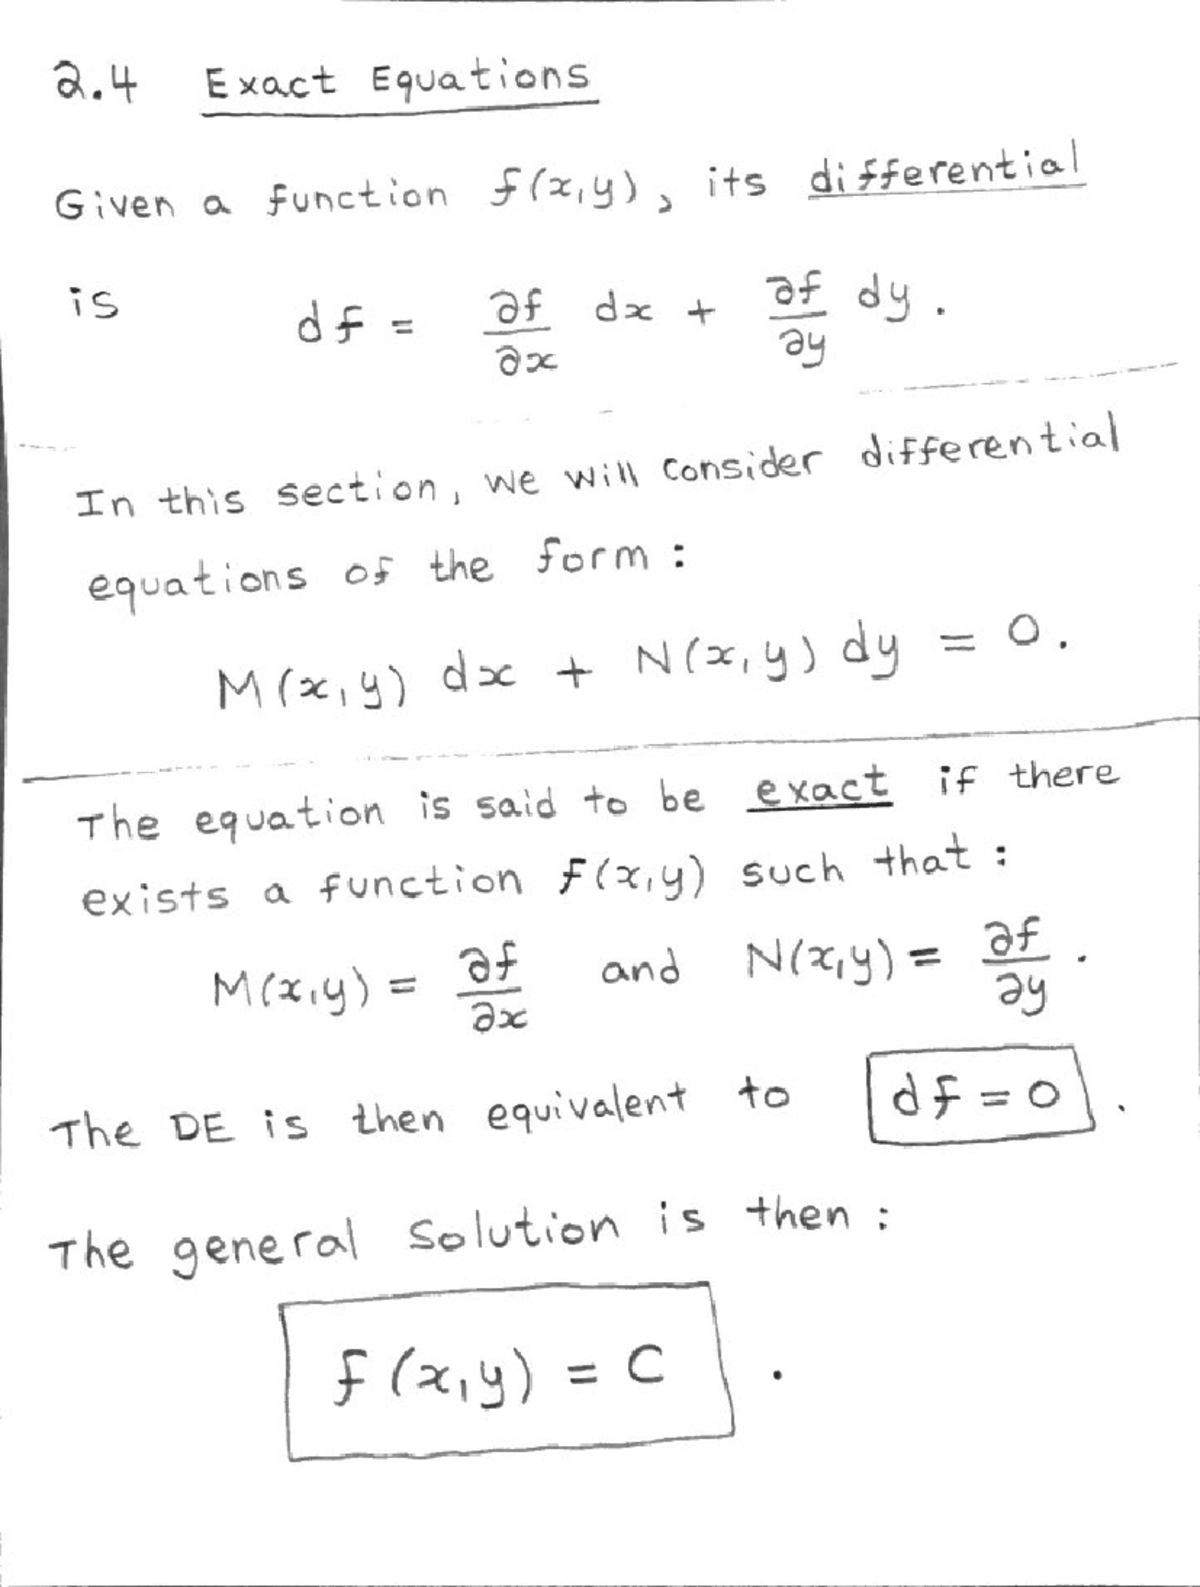 2.4 Exact Equations
Given a function f(x,y), its differential
is df = ∂f/∂x dx + ∂f/∂y dy.
In this section, we will consider differential
equations of the form:
M(x,y) dx + N(x,y) dy = 0.
The equation is said to be exact if there
exists a function f(x,y) such that:
M(x,y) = ∂f/∂x and N(x,y) = ∂f/∂y.
The DE is then equivalent to df = 0.
The general solution is then:
f(x,y) = C.